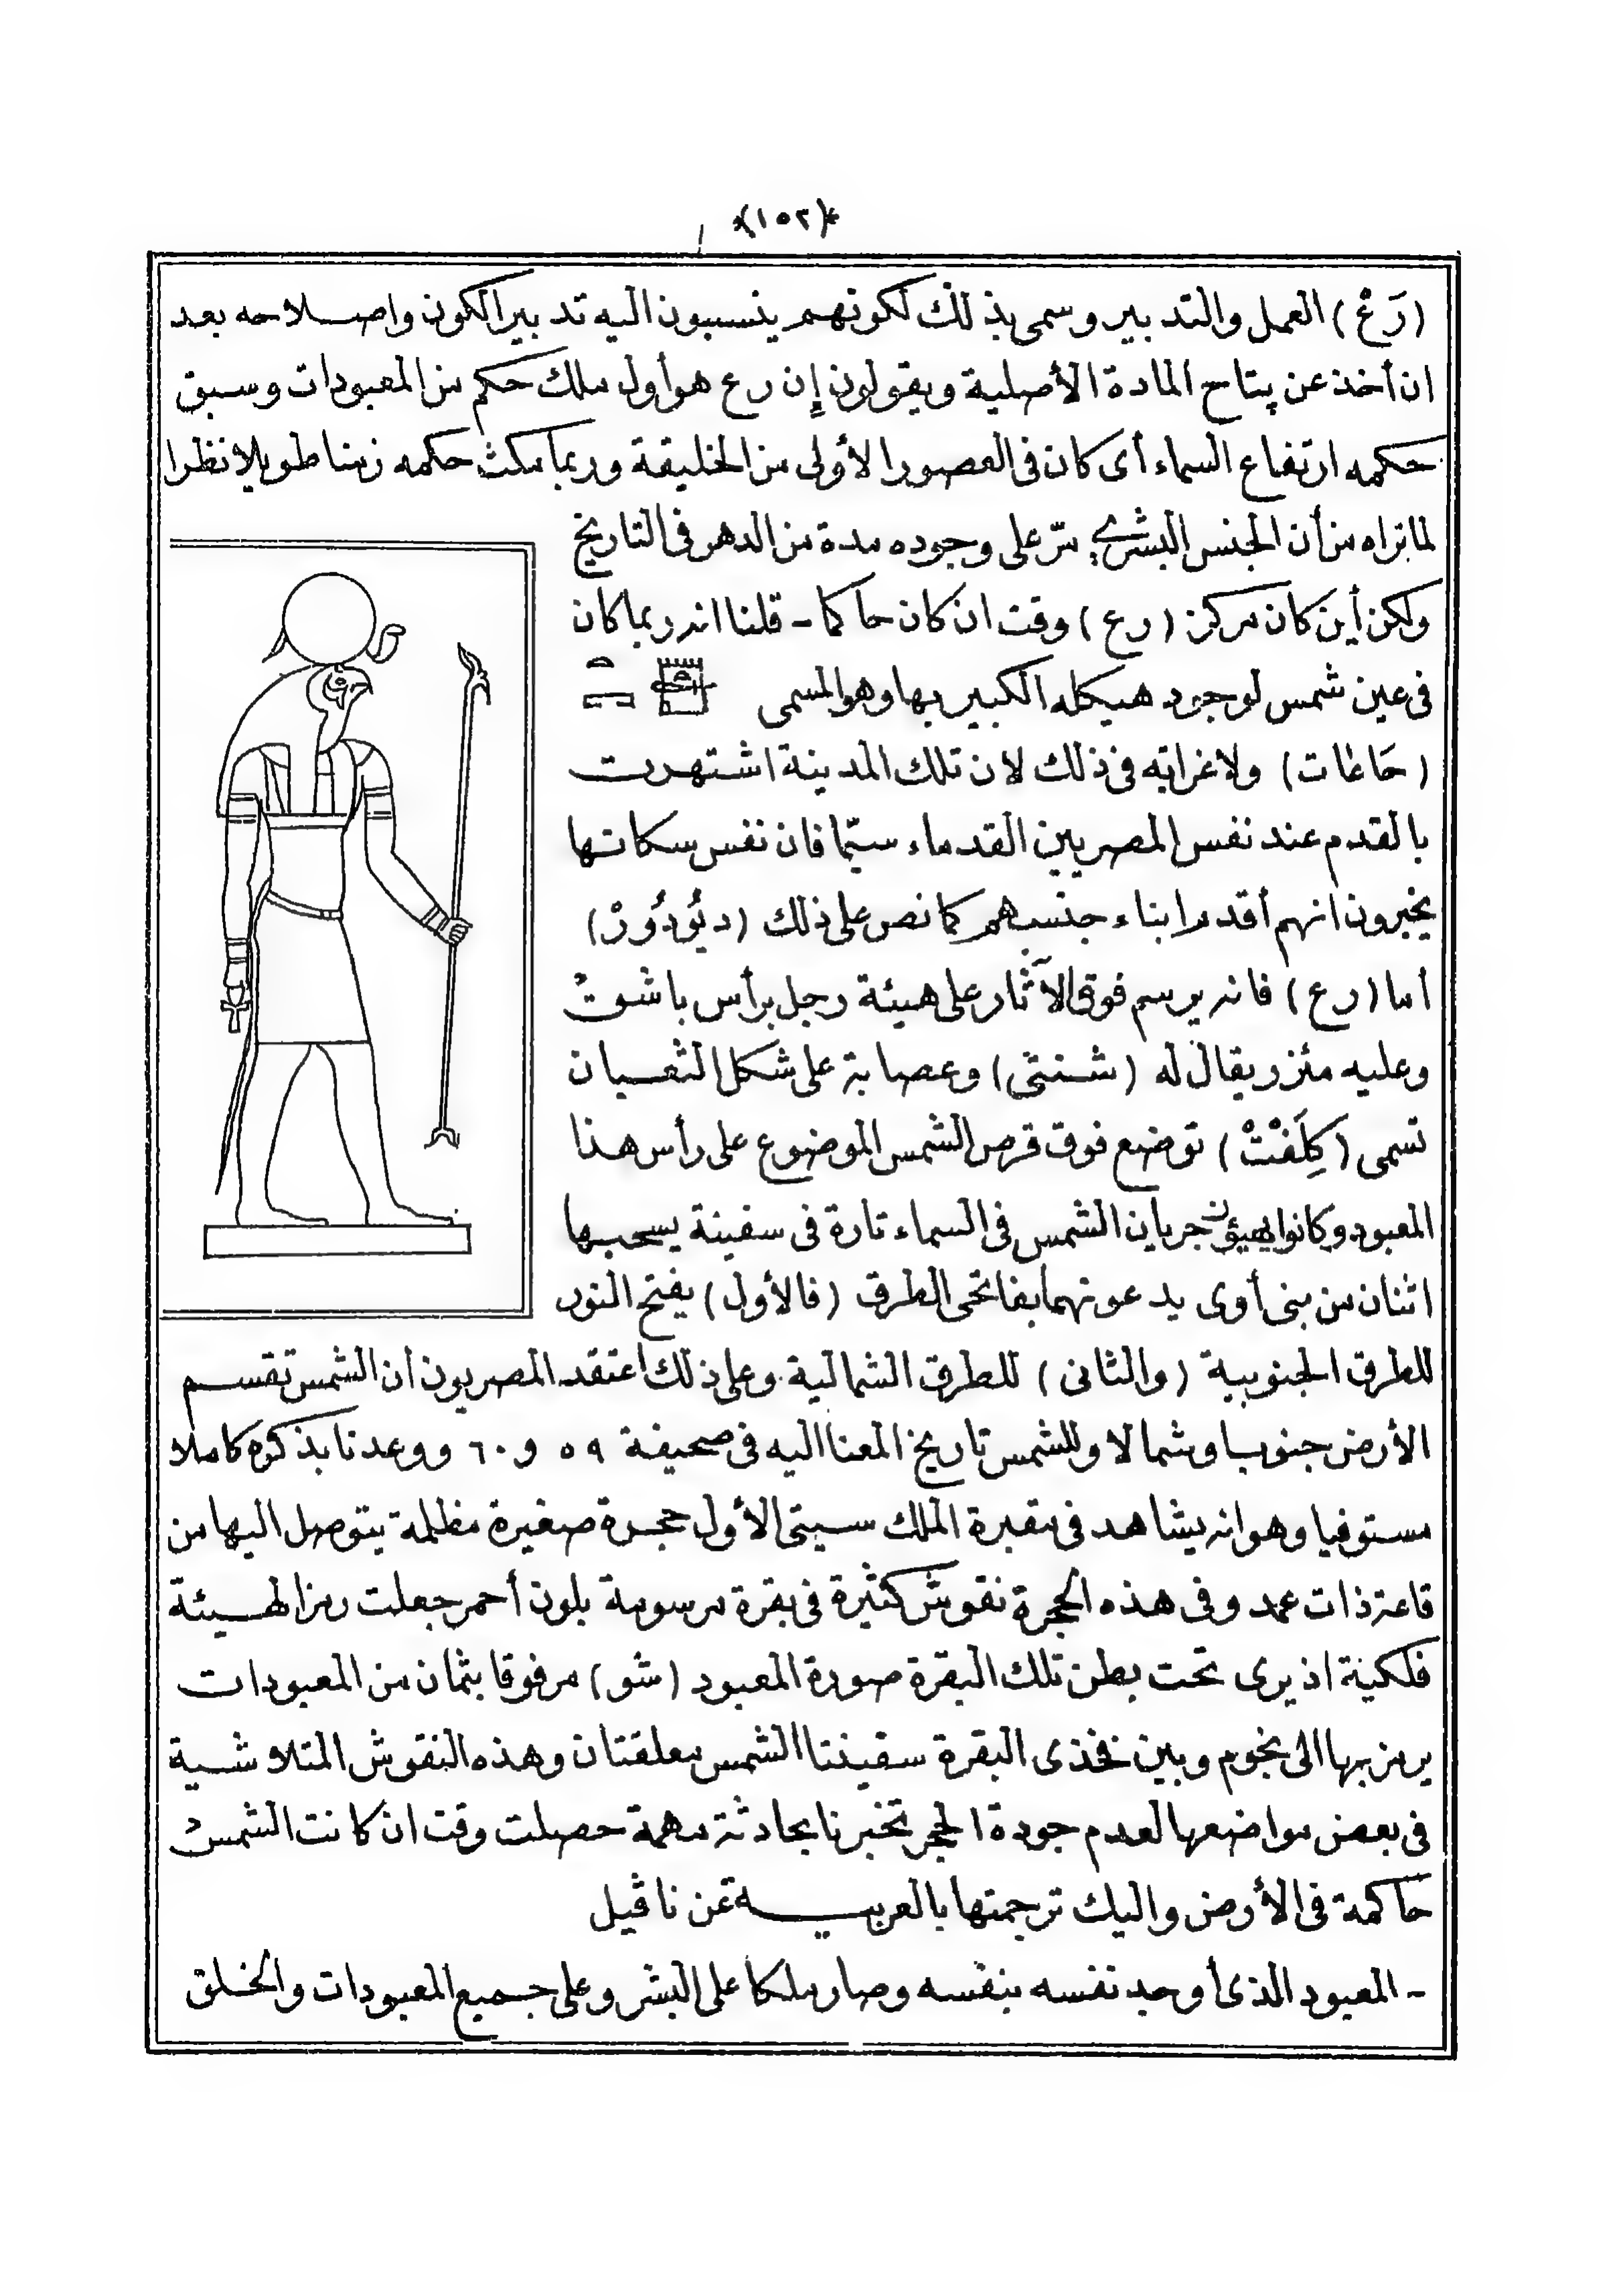 *(١٥٢)*
(رَعْ) العمل والتدبير وسمى بذلك لكونهم ينسبون اليه تدبير الكون واصلاحه بعد
ان أخذ عن پتاح المادة الأصلية ويقولون إن رع هو أول ملك حكم من المعبودات وسبق
حكمه ارتفاع السماء أى كان فى العصور الأولى من الخليقة وربما مكث حكمه زمنا طويلا نظرا
لما نراه من أن الجنس البشرى مرّ على وجوده مدة من الدهر فى التاريخ
ولكن أين كان مركز (رع) وقت ان كان حاكما - قلنا انه ربما كان
فى عين شمس لوجود هيكله الكبير بها وهو المسمى
(حَاعَات) ولا غرابه فى ذلك لان تلك المدينة اشتهرت
بالقدم عند نفس المصريين القدماء سيّما فان نفس سكانها
يخبرون انهم أقدم ابناء جنسهم كما نص على ذلك (ديُودُورْ)
أما (رع) فانه يرسم فوق الآثار على هيئة رجل برأس باشق
وعليه مئزر يقال له (شنتى) وعصابة على شكل الثعبان
تسمى (كِلَفْتْ) توضع فوق قرص الشمس الموضوع على رأس هذا
المعبود وكانوا يهيؤن جريان الشمس فى السماء تارة فى سفينة يسحبها
اثنان من بنى أوى يدعونهما بفاتحى الطرق (فالأول) يفتح النور
للطرق الجنوبية (والثانى) للطرق الشمالية وعلى ذلك اعتقد المصريون ان الشمس تقسم
الأرض جنوبا وشمالا وللشمس تاريخ المعنا اليه فى صحيفة ٥٩ و ٦٠ ووعدنا بذكره كاملا
مستوفيا وهو انه يشاهد فى مقبرة الملك سيتى الأول حجرة صغيرة مظلمة يتوصل اليها من
قاعة ذات عمد وفى هذه الحجرة نقوش كثيرة فى بقرة مرسومة بلون أحمر جعلت رمزا لهيئة
فلكية اذ يرى تحت بطن تلك البقرة صورة المعبود (شو) مرفوقا بثمان من المعبودات
يرمز بها الى نجوم وبين فخذى البقرة سفينتا الشمس معلقتان وهذه النقوش المتلاشية
فى بعض مواضعها لعدم جودة الحجر تخبرنا بحادثة مهمة حصلت وقت ان كانت الشمس
حاكمة فى الأرض واليك ترجمتها بالعربية عن ناڤيل
- المعبود الذى أوجد نفسه بنفسه وصار ملكا على البشر وعلى جميع المعبودات والخلق